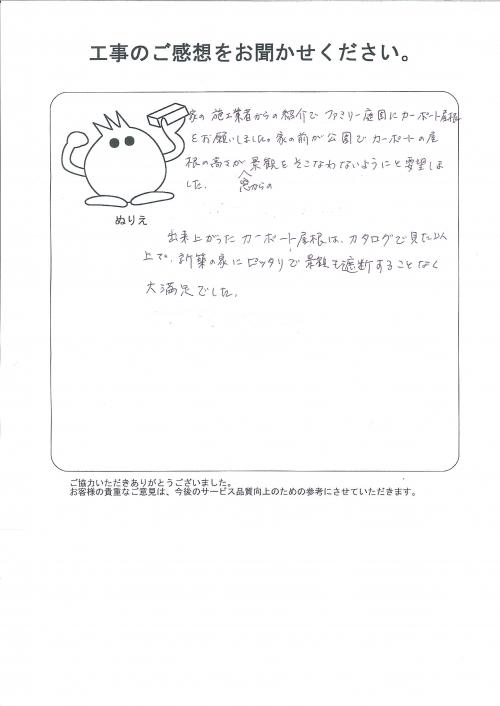 工事のご感想をお聞かせください。
家の施工業者からの紹介でファミリー庭園にカーポート屋根
をお願いしました。家の前が公園でカーポートの屋
根の高さが景観をそこなわないようにと要望しま
した。 窓からの
ぬりえ
出来上がったカーポート屋根は、カタログで見た以
上で、新築の家にピッタリで景観も遮断することなく
大満足でした。
ご協力いただきありがとうございました。
お客様の貴重なご意見は、今後のサービス品質向上のための参考にさせていただきます。